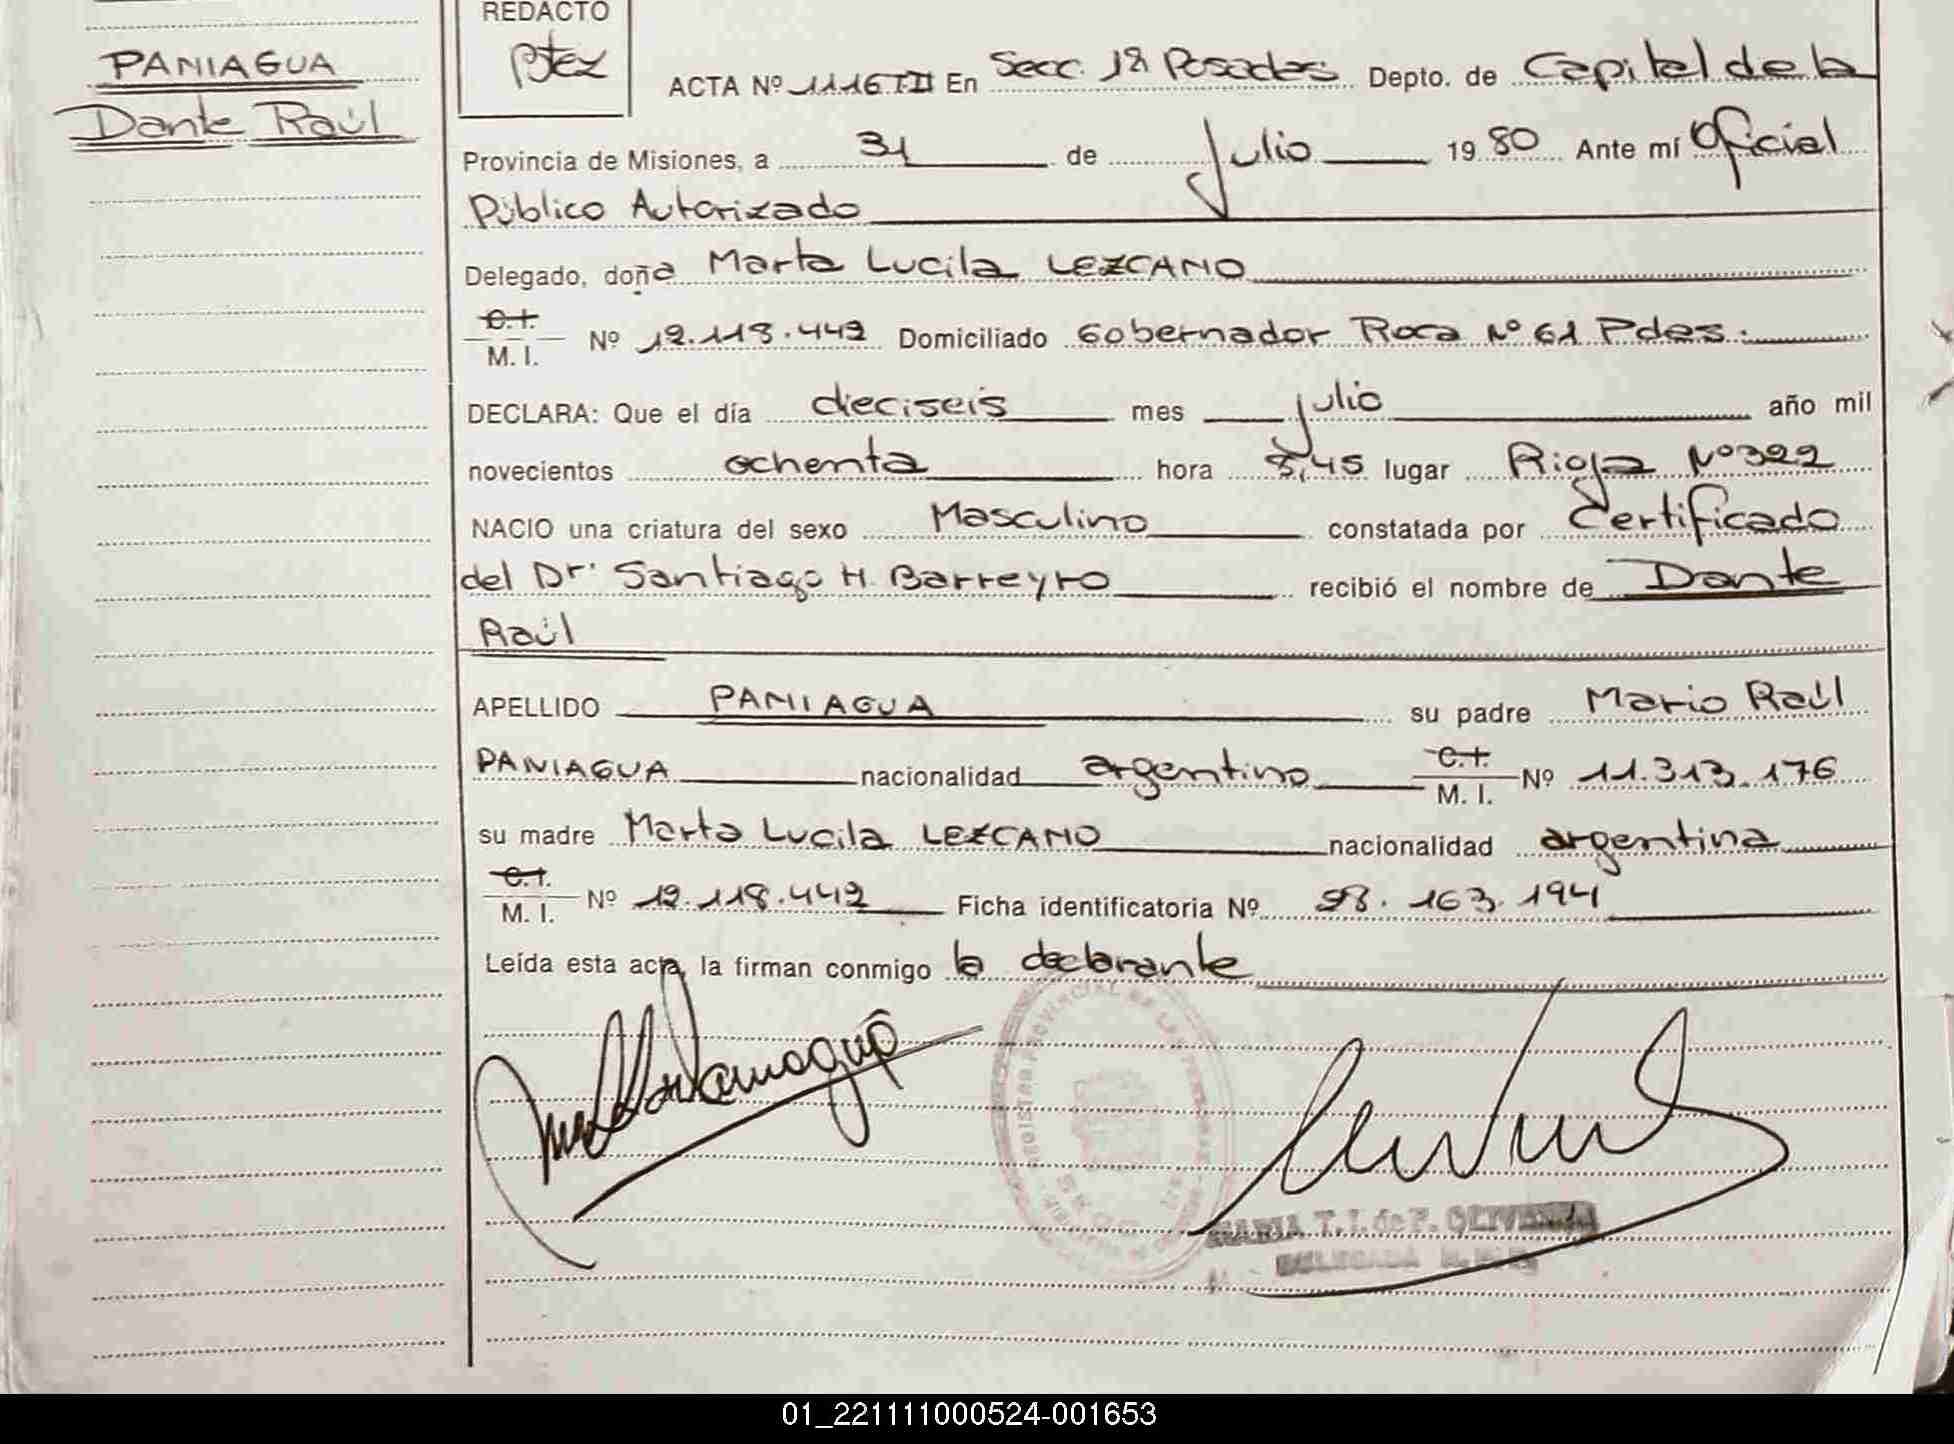 PANIAGUA
Dante Raúl
REDACTO
ACTA Nº 1116 TII En Secc. 1ª Posadas Depto. de Capital de la
Provincia de Misiones, a 31 de julio 1980 Ante mí Oficial
Público Autorizado
Delegado, doña Marta Lucila LEZCANO
C.I.
M. I. Nº 12.118.442 Domiciliado Gobernador Roca Nº 61 Pdas.
DECLARA: Que el día dieciseis mes julio año mil
novecientos ochenta hora 8,45 lugar Rioja Nº 322
NACIO una criatura del sexo Masculino constatada por Certificado
del Dr. Santiago H. Barreyro recibió el nombre de Dante
Raúl
APELLIDO PANIAGUA su padre Mario Raúl
PANIAGUA nacionalidad argentino C.I. M. I. Nº 11.313.176
su madre Marta Lucila LEZCANO nacionalidad argentina
C.I.
M. I. Nº 12.118.442 Ficha identificatoria Nº 28.163.194
Leída esta acta, la firman conmigo la declarante
REGISTRO PROVINCIAL DE LAS PERSONAS
MARIA T. I. de F. OLIVEIRA
DELEGADA
01_221111000524-001653